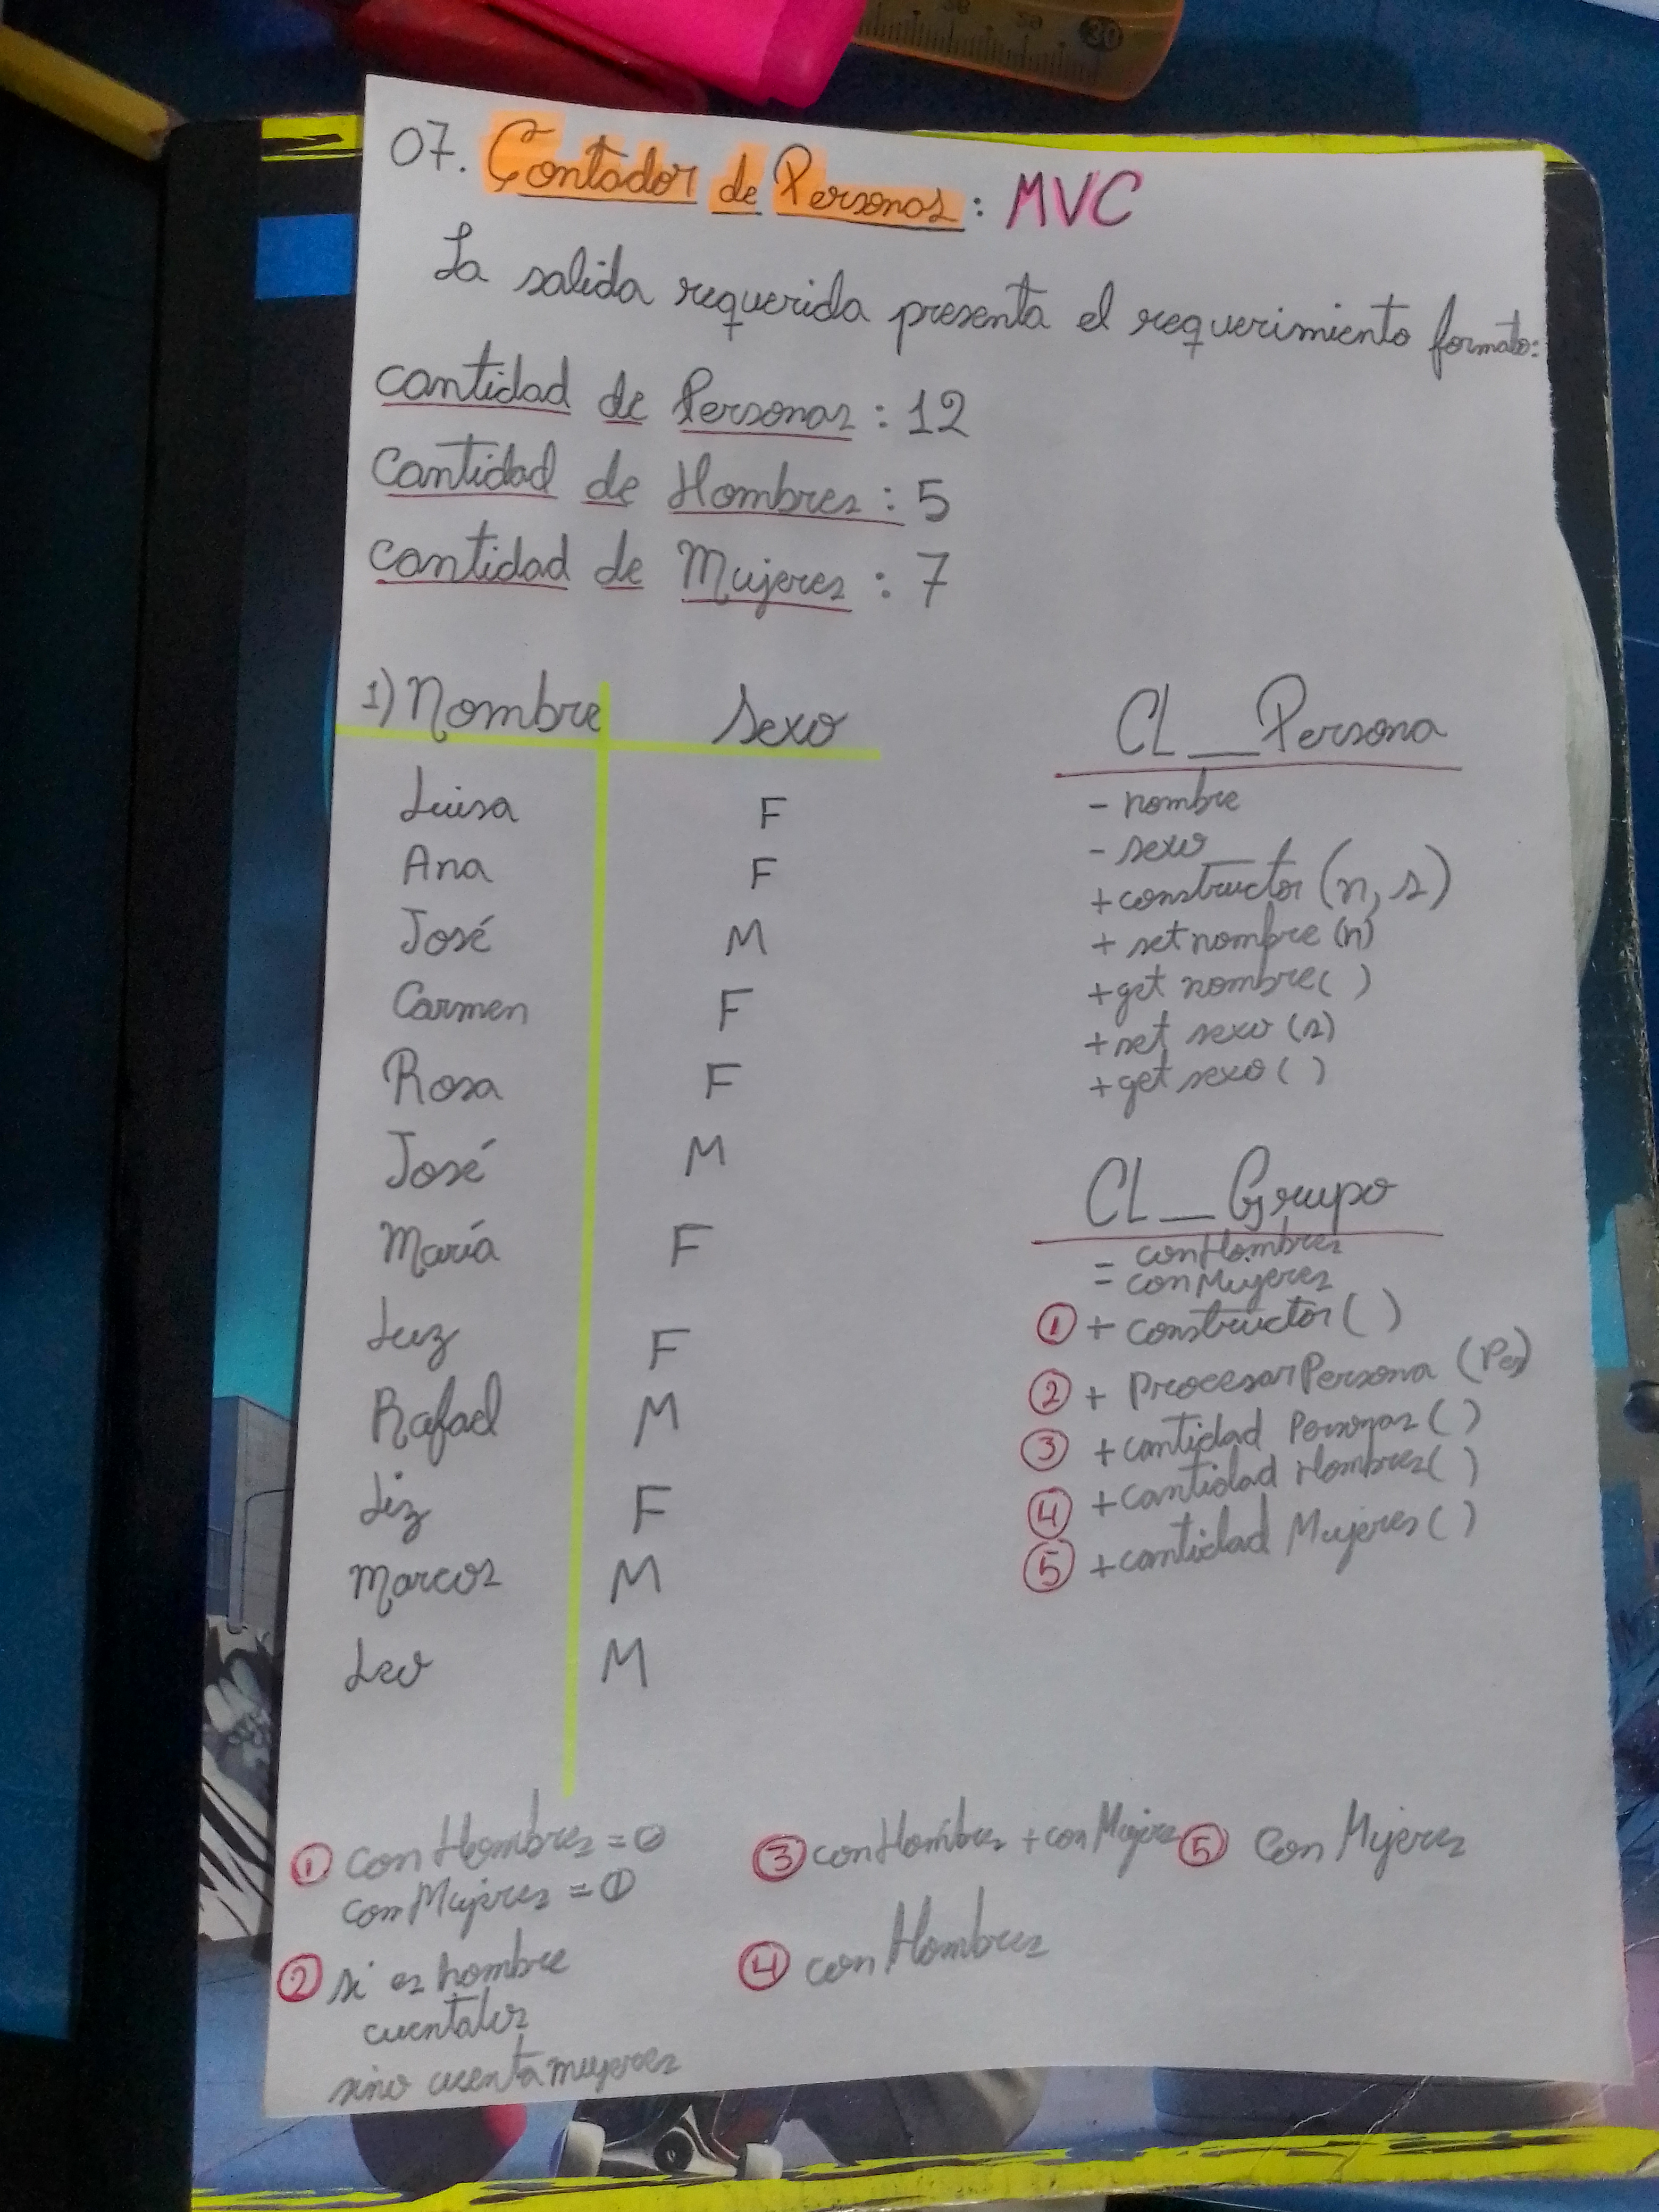 07. Contador de Personas: MVC
La salida requerida presenta el requerimiento formato:
cantidad de Personas: 12
Cantidad de Hombres: 5
cantidad de Mujeres: 7
1) Nombre Sexo
Luisa F
Ana F
José M
Carmen F
Rosa F
José M
María F
Luz F
Rafael M
Liz F
Marcos M
Leo M
CL_Persona
- nombre
- sexo
+constructor (n, s)
+ set nombre (n)
+get nombre( )
+set sexo (s)
+get sexo ( )
CL_Grupo
= conHombres
= conMujeres
① + constructor( )
② + ProcesarPersona (Per)
③ +cantidad Personas ( )
④ +cantidad Hombres( )
⑤ +cantidad Mujeres ( )
① conHombres = 0
conMujeres = 0
② si es hombre
cuentalos
sino cuenta mujeres
③ conHombres + conMujeres
④ con Hombres
⑤ Con Mujeres
30
29